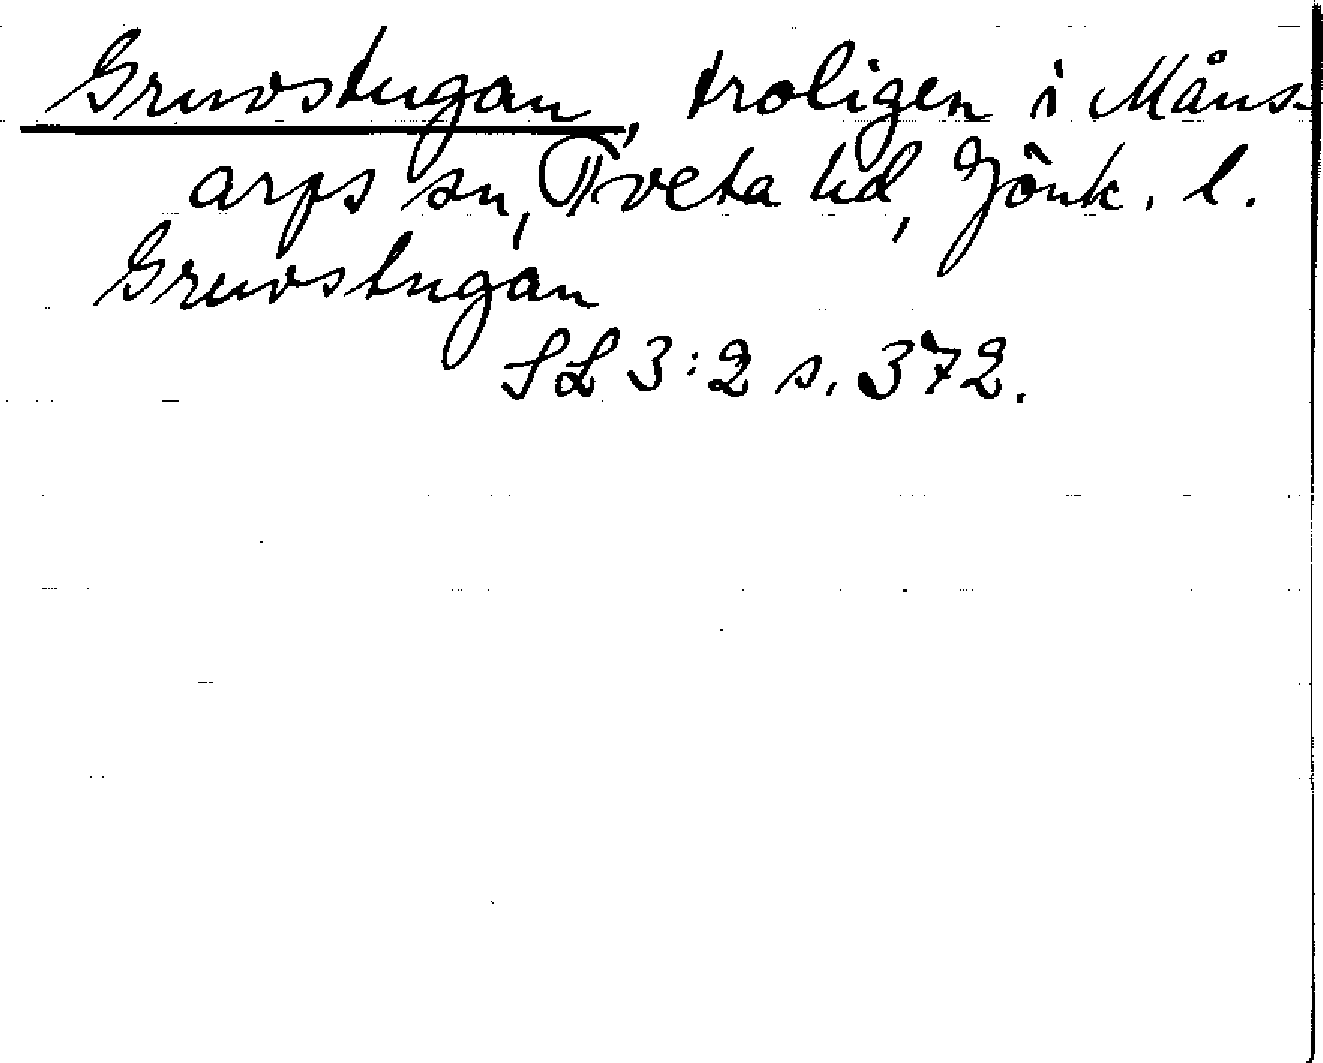 Gruvstugan, troligen i Måns-
arps sn, Tveta hd, Jönk. l.
Gruvstugan
SL 3:2 s. 372.